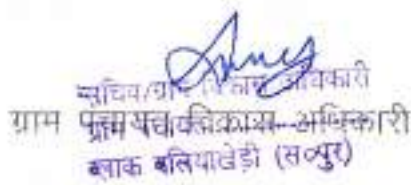 सचिव/ग्राम विकास अधिकारी
ग्राम पंचायत विकास अधिकारी
ग्राम पंचायत
ब्लाक बलियाखेड़ी (स०पुर)